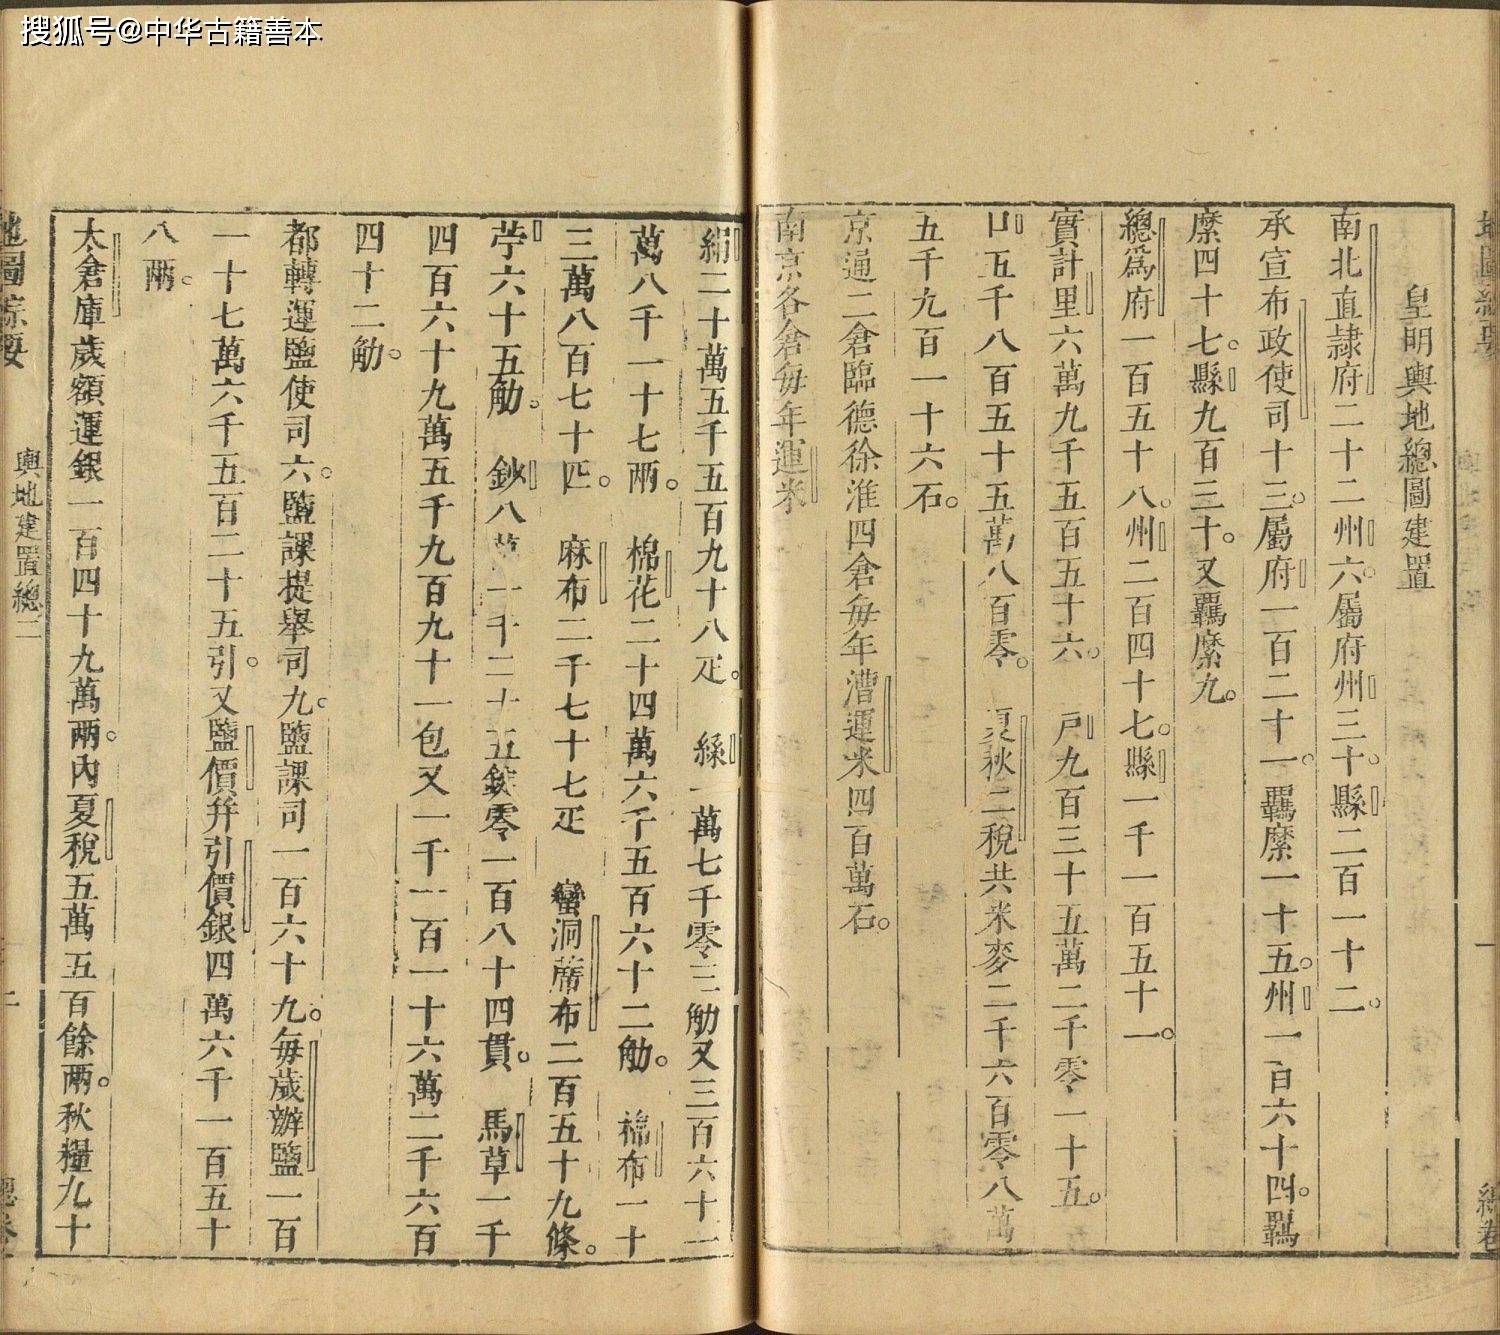 搜狐号@中华古籍善本
皇明輿地總圖建置
南北直隷府二十二州六屬府州三十縣二百一十二
承宣布政使司十三屬府一百二十一羈縻一十五州一百六十四羈
縻四十七縣九百三十又羈縻九
總爲府一百五十八州二百四十七縣一千一百五十一
實計里六萬九千五百五十六 戸九百三十五萬二千零一十五
口五千八百五十五萬八百零 夏秋二稅共米麥二千六百零八萬
五千九百一十六石
京通二倉臨德徐淮四倉每年漕運米四百萬石
南京各倉每年運米
絹二十萬五千五百九十八疋 絲一萬七千零三觔又三百六十二
萬八千一十七兩 棉花二十四萬六千五百六十二觔 棉布一十
三萬八百七十四 麻布二千七十七疋 蠻洞蓆布二百五十九條
苧六十五觔 鈔八萬一千二十五錠零一百八十四貫 馬草一千
四百六十九萬五千九百九十一包又一千二百一十六萬二千六百
四十二觔
都轉運鹽使司六鹽課提舉司九鹽課司一百六十九每歲辦鹽一百
一十七萬六千五百二十五引又鹽價并引價銀四萬六千一百五十
八兩
太倉庫歲額運銀一百四十九萬兩內夏稅五萬五百餘兩秋糧九十
地圖綜要
輿地建置總
二
總卷